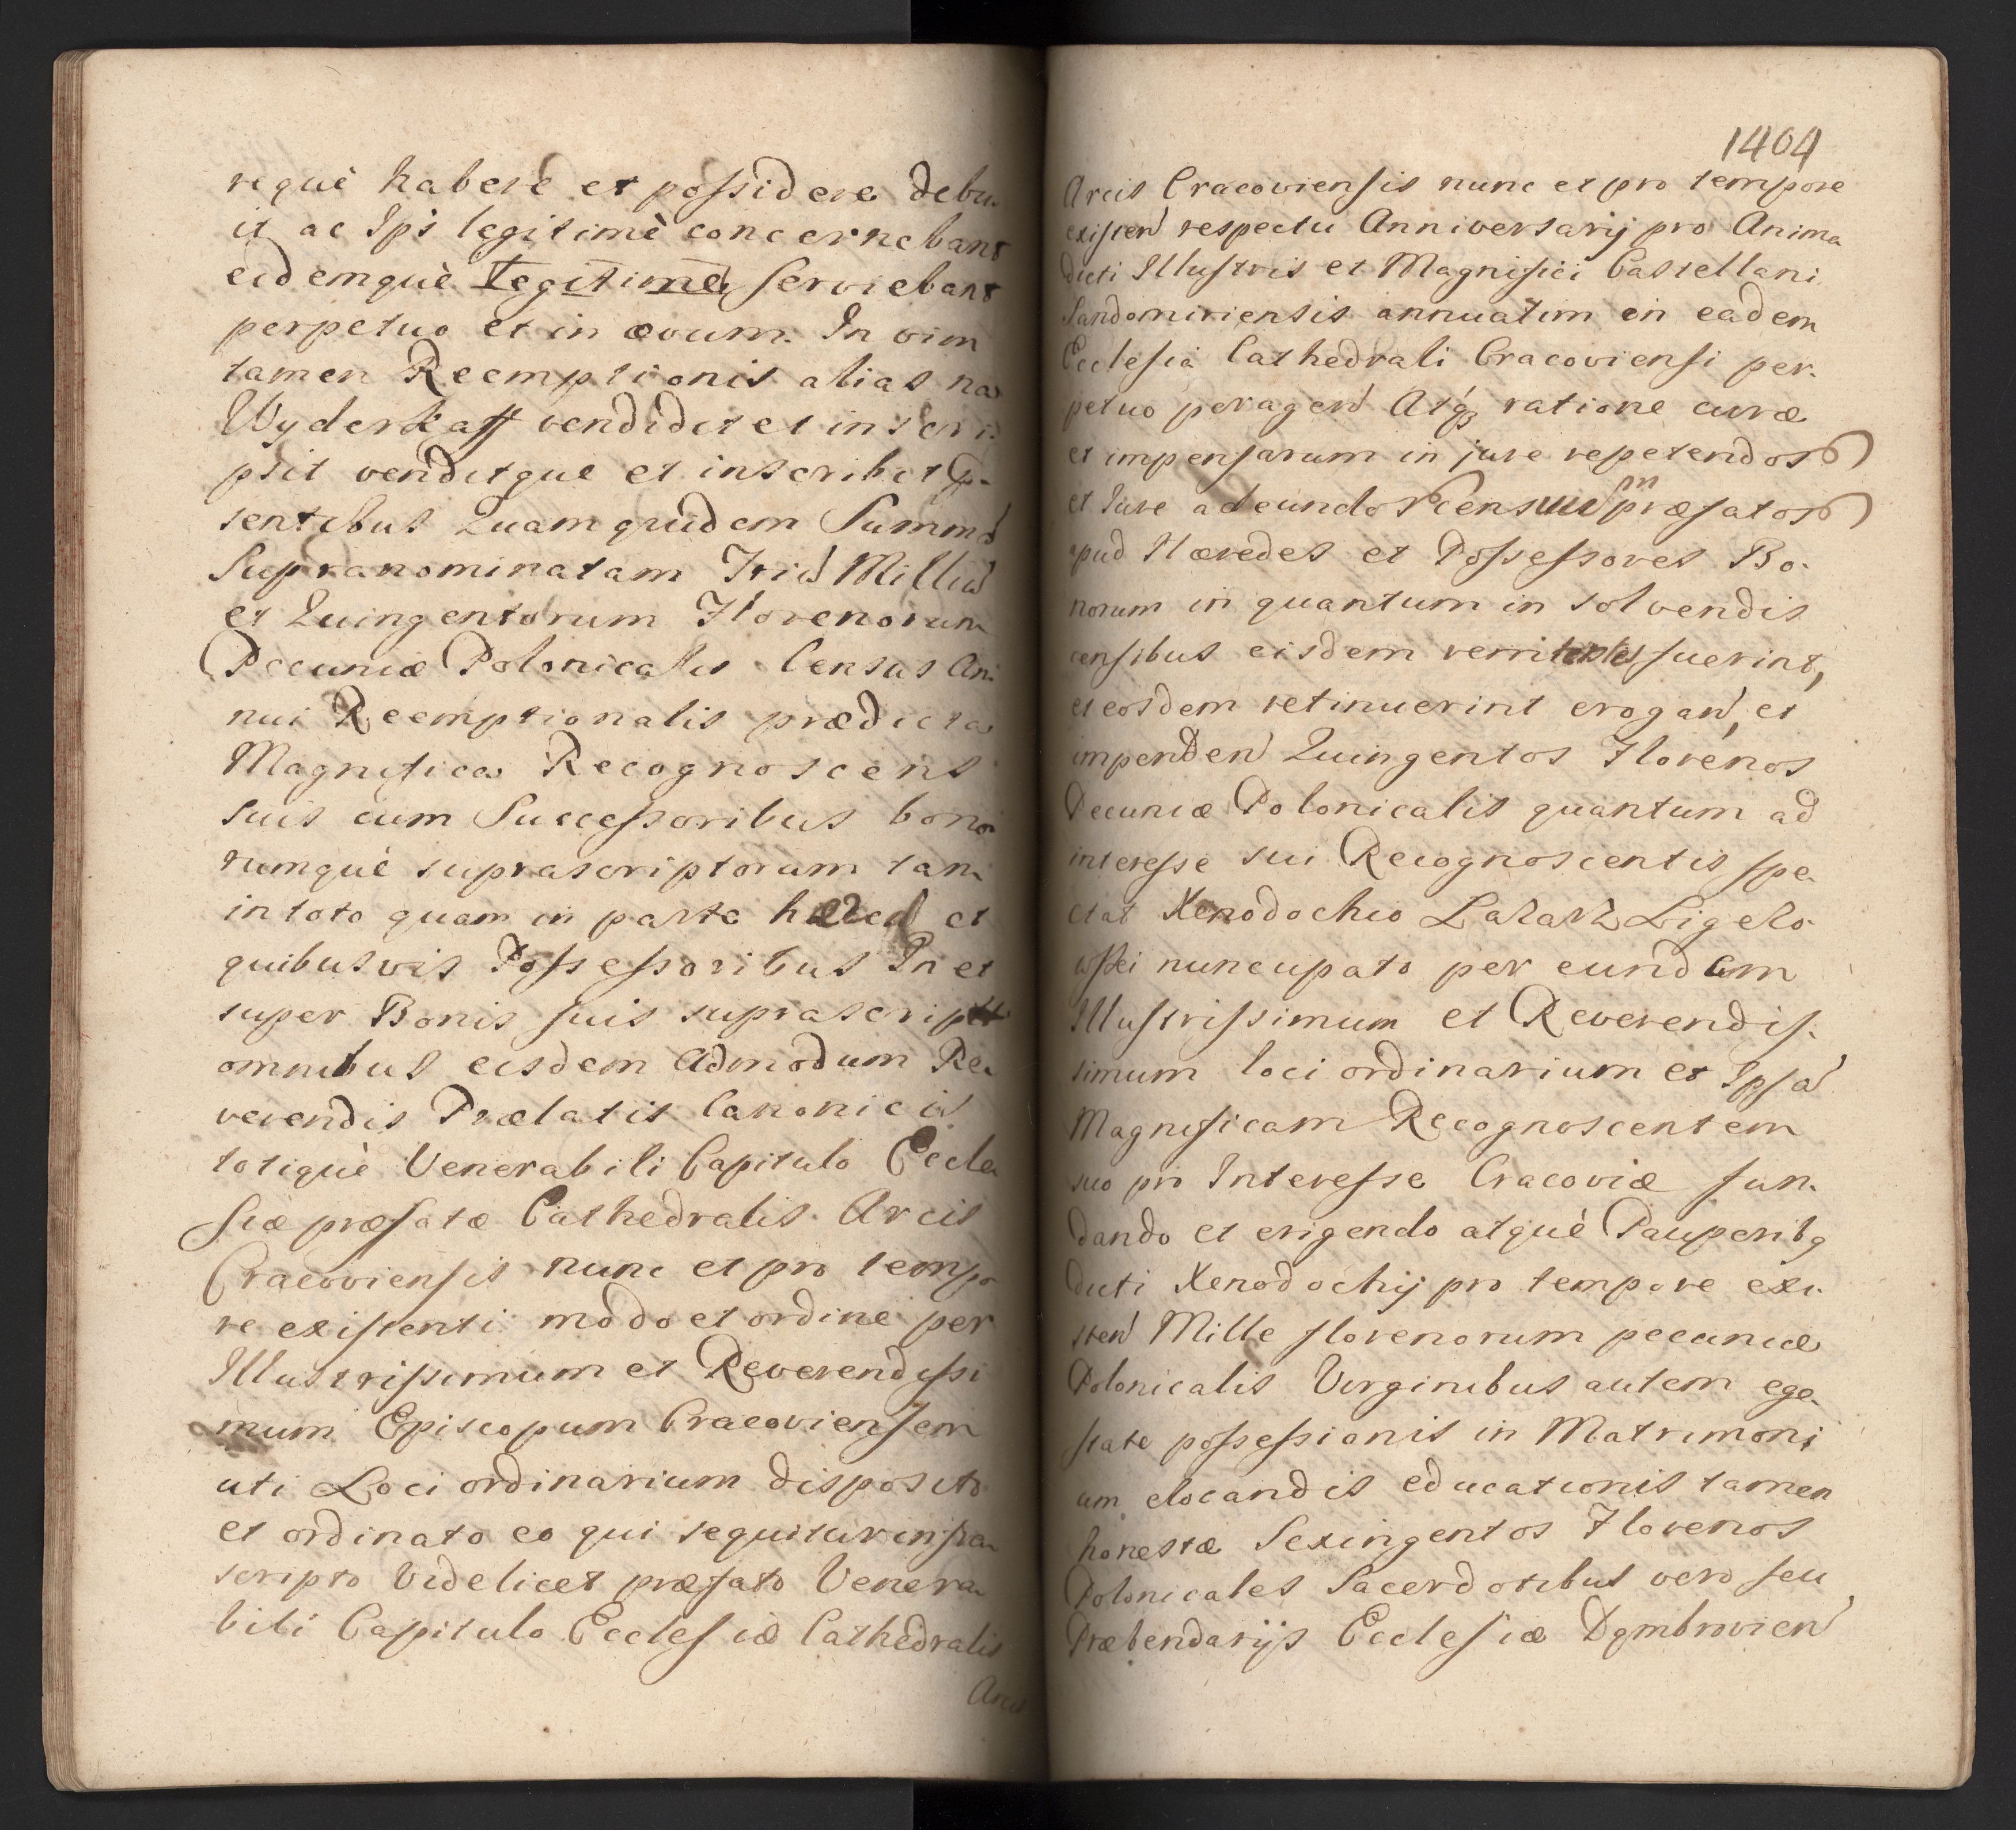 requè habere et possidere debu-
it ac Ipi legitimè concernebant
eidemquè Legitimè serviebant
perpetuo et in ævum. In vim
tamen Reemptionis alias na
Wyderkaff vendidit et inscri-
psit venditque et inscribit p-
sentibus Quam quidem Summã
Supranominatam Triũ Milliũ
et Quingentorum Florenorum
Pecuniæ Polonicalis Census An-
nui Reemptionalis prædicta
Magnifica Recognoscens
suis cum Successoribus bono-
rumquè suprascriptorum tam
in toto quam in parte hæred et
quibusvis Possessoribus In et
super Bonis suis suprascript
omnibus eisdem Admodum Re-
verendis Prælatis Canonicis
totiquè Venerabili Capitulo Eccle-
siæ præfatæ Cathedralis Arcis
Cracoviensis nunc et pro tempo-
re existenti modo et ordine per
Illustrissimum et Reverendissi
mum Episcopum Cracoviensem
uti Loci ordinarium disposito
et ordinato eo qui sequitur infra-
scripto Videlicet præfato Venera-
bili Capitulo Ecclesiæ Cathedralis
Arcis
1404
Arcis Cracoviensis nunc et pro tempore
existen respectu Anniversarij pro Anima
dicti Illustris et Magnifici Castellani
Sandomiriensis annuatim in eadem
Ecclesia Cathedrali Cracoviensi per-
petuo peragen Atq3 ratione curæ
et impensarum in jure repetendos
et Jure adeundo Census præfatos
apud Hæredes et Possessores Bo-
norum in quantum in solvendis
censibus eisdem fuerint,
et eosdem retinuerint erogan, et
impenden Quingentos Florenos
Pecuniæ Polonicalis quantum ad
interesse sui Recognoscentis spe-
ctat Xenodochio
nuncupato per eundem
Illustrissimum et Reverendis-
simum loci ordinarium et Ipsã
Magnificam Recognoscentem
suo pro Interesse Cracoviæ fun-
dando et erigendo atquè Pauperibq
dicti Xenodochij pro tempore exi-
sten Mille florenorum pecuniæ
Polonicalis Virginibus autem ege-
state possessionis in Matrimoni
um elocandis educationis tamen
honestæ Sexingentos Florenos
Polonicales Sacerdotibus vero seu
Præbendarijs Ecclesiæ Dąmbrovien